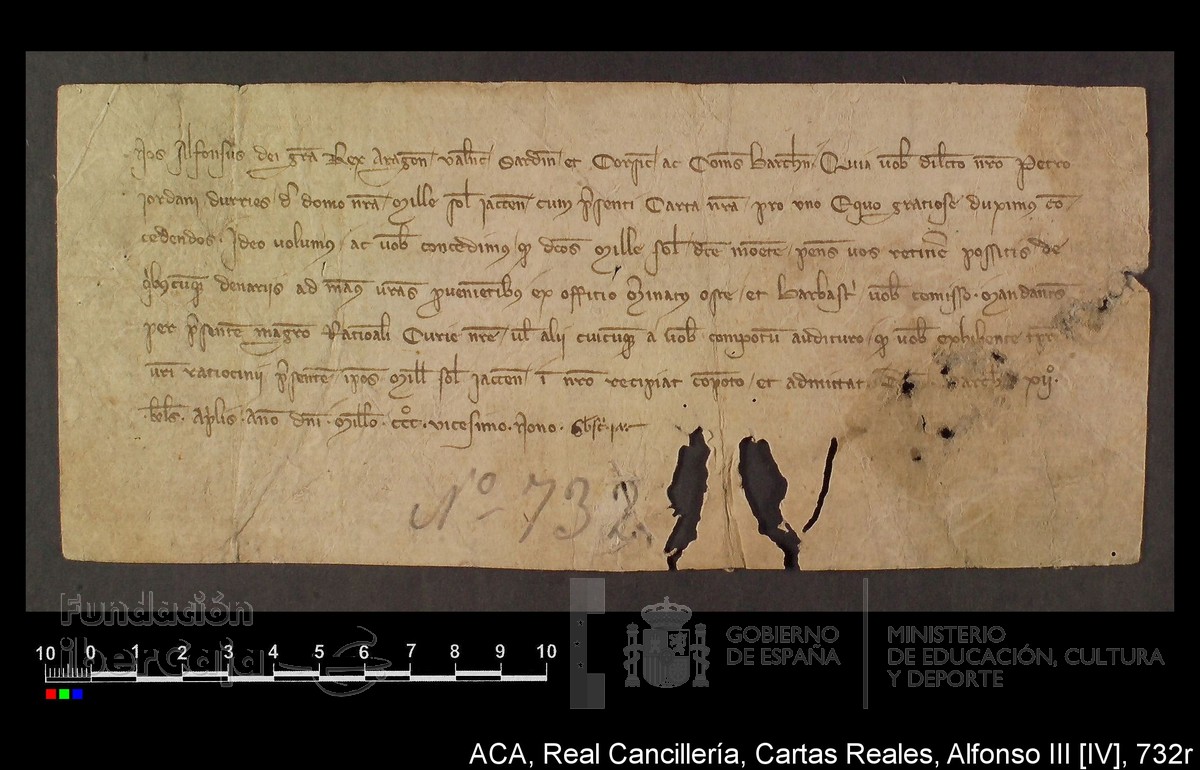 Nos Alfonsus dei gra Rex Aragon Valenc Sardin et Corsic ac Comes Barchn. Quia vob dilcto nro Petro
Jordani durries d domo nra Mille sol iaccen cum psenti Carta nra pro uno Equo gratiose duximus con
cedendos. Ideo volumus ac vob concedimus q dcos Mille sol dce monete penes vos retinere possitis de
denariis ad man vras pvenietibus ex officio osce et Barbastr vob comisso. Mandantes
per psentem magro Racionali Curie nre vl alii cuicunq a vob compotum audituro q vob exhibente tpr
vri ratiocinii psentem ipos Mill sol iaccen i nro recipiat compoto et admittat. xijo
kls Aplis Ano dni Millo CCCo vicesimo Nono
No 732
Fundación
ibercaja
10 0 1 2 3 4 5 6 7 8 9 10
GOBIERNO
DE ESPAÑA
MINISTERIO
DE EDUCACIÓN, CULTURA
Y DEPORTE
ACA, Real Cancillería, Cartas Reales, Alfonso III [IV], 732r